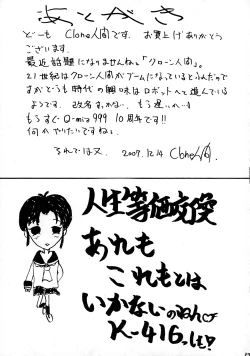 あとがき
どーも Clone人間です。お買上げありがとう
ございます。
最近話題になりませんね。「クローン人間」。
21世紀はクローン人間がブームになっていると ふんだので
すがどうも時代の興味はロボットへと進んでいる
ようです。改名すっかな…もう遅いか…
もうすぐ 10周年です!!
何かやりたいですねぃ。
それでは又 2007.12.14 Clone人間
人生等価交換
あれも
これもとは
いかないのねん
K-416。しも?